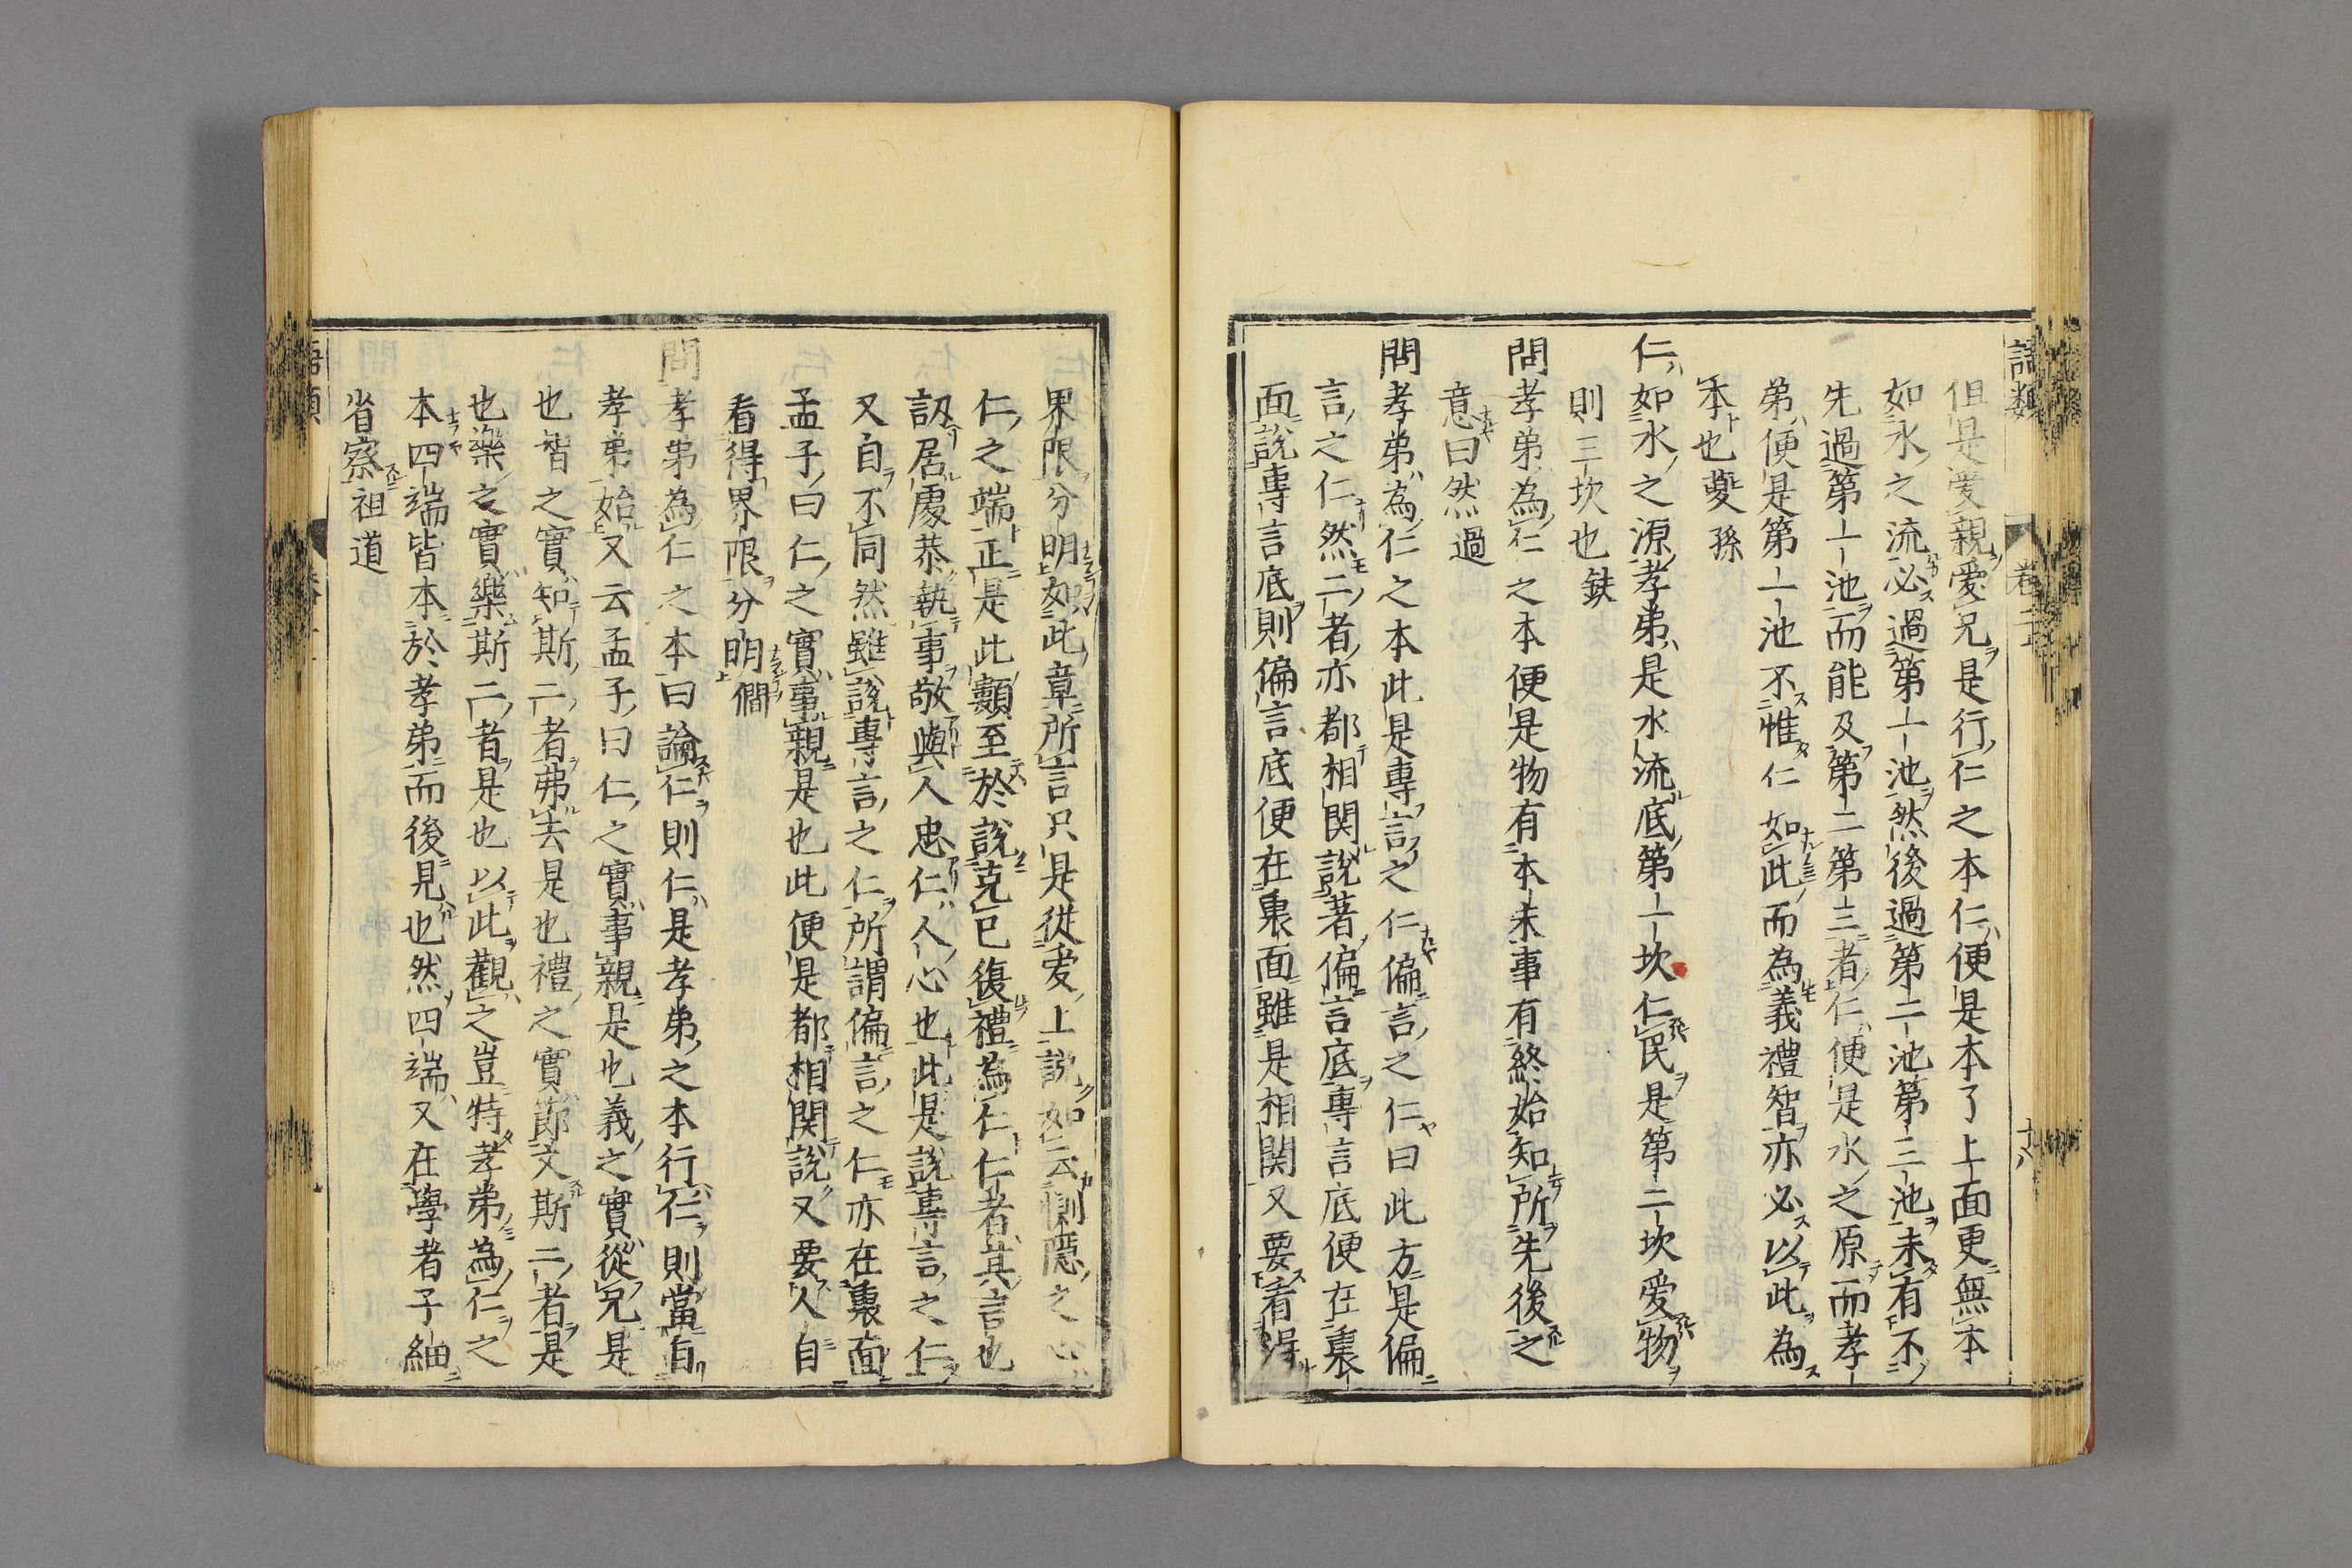 但是愛親愛兄是行仁之本仁便是本了上面更無本
如水之流必過第一池然後過第二池第三池未有不
先過第一池而能及第二第三者仁便是水之原而孝
弟便是第一池不惟仁如此而為義禮智亦必以此為
本也夔孫
仁如水之源孝弟是水流底第一坎仁民是第二坎愛物
則三坎也銖
問孝弟為仁之本便是物有本末事有終始知所先後之
意曰然過
問孝弟為仁之本此是專言之仁偏言之仁曰此方是偏
言之仁然二者亦都相関說著偏言底專言底便在裏
面說專言底則偏言底便在裏面雖是相関又要看得
界限分明如此章所言只是從愛上說如云惻隱之心
仁之端正是此類至於說克已復禮為仁仁者其言也
訒居處恭執事敬與人忠仁人心也此是說專言之仁
又自不同然雖說專言之仁所謂偏言之仁亦在裏面
孟子曰仁之實事親是也此便是都相関說又要人自
看得界限分明僩
問孝弟為仁之本曰論仁則仁是孝弟之本行仁則當自
孝弟始又云孟子曰仁之實事親是也義之實從兄是
也智之實知斯二者弗去是也禮之實節文斯二者是
也樂之實樂斯二者是也以此觀之豈特孝弟為仁之
本四端皆本於孝弟而後見也然四端又在學者子細
省察祖道
語類
卷二十
十八